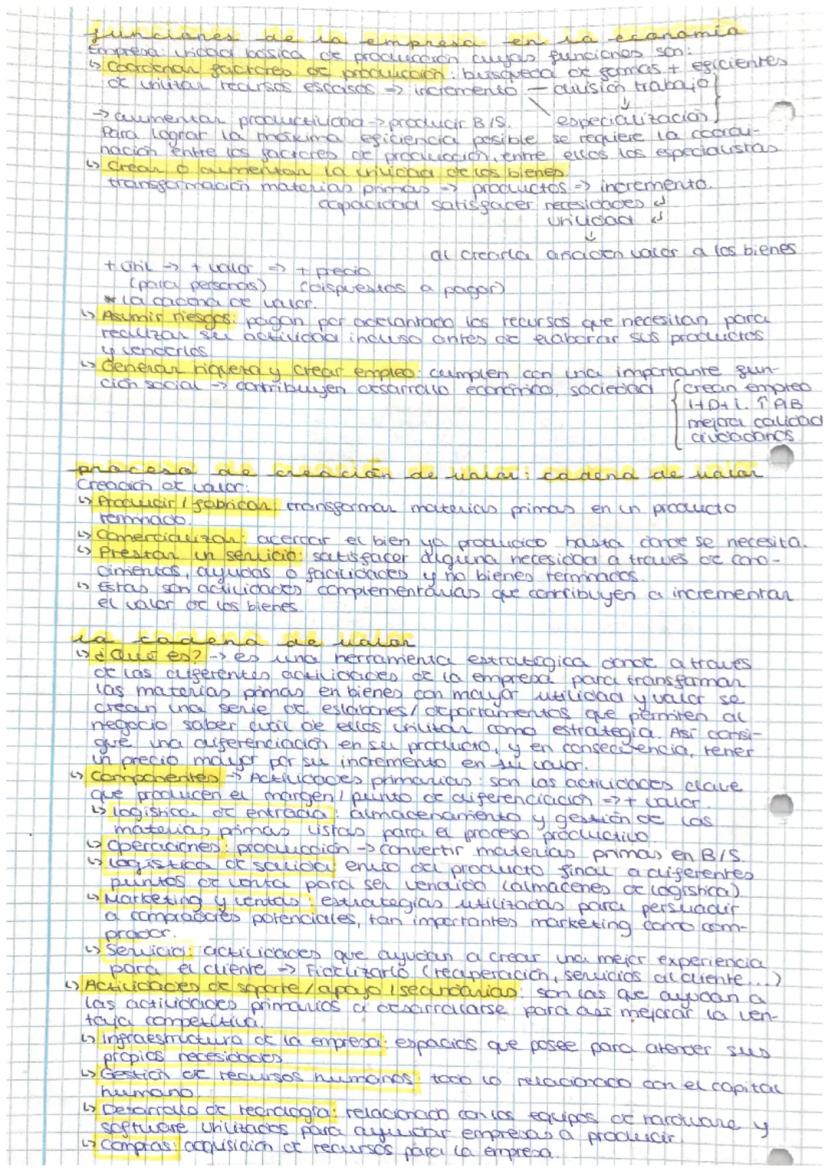 funciones de la empresa en la economía
Empresa: unidad básica de producción cuyas funciones son:
↳ Coordinar factores de producción: búsqueda de formas + eficientes
de utilizar recursos escasos => incremento — división trabajo
-> aumentar productividad -> producir B/S. especialización
Para lograr la máxima eficiencia posible se requiere la coordi-
nación entre los factores de producción, entre ellos los especialistas
↳ Crear o aumentar la utilidad de los bienes
transformación materias primas => productos => incremento.
capacidad satisfacer necesidades
utilidad
↓
al crearla añaden valor a los bienes
+ útil -> + valor => + precio
(para personas) (dispuestos a pagar)
* la cadena de valor.
↳ Asumir riesgos: pagan por adelantado los recursos que necesitan para
realizar su actividad incluso antes de elaborar sus productos
y venderlos
↳ Generar riqueza y crear empleo: cumplen con una importante fun-
ción social -> contribuyen desarrollo económico, sociedad crean empleo
I+D+i. ↑
mejora calidad
ciudadanos
proceso de creación de valor: cadena de valor
Creación de valor:
↳ Producir / fabricar: transformar materias primas en un producto
terminado.
↳ Comercializar: acercar el bien ya producido hasta donde se necesita.
↳ Prestar un servicio: satisfacer alguna necesidad a través de cono-
cimientos, ayudas o facilidades y no bienes terminados.
↳ Estas son actividades complementarias que contribuyen a incrementar
el valor de los bienes.
la cadena de valor
↳ ¿Qué es? -> es una herramienta estratégica donde a través
de las diferentes actividades de la empresa para transformar
las materias primas en bienes con mayor utilidad y valor se
crean una serie de eslabones / departamentos que permiten al
negocio saber cuál de ellos utilizar como estrategia. Así consi-
gue una diferenciación en su producto, y en consecuencia, tener
un precio mayor por su incremento en su valor.
↳ Componentes -> Actividades primarias: son las actividades clave
que producen el margen / punto de diferenciación => + valor.
↳ Logística de entrada: almacenamiento y gestión de las
materias primas listas para el proceso productivo
↳ Operaciones: producción -> convertir materias primas en B/S
↳ Logística de salida: envío del producto final a diferentes
puntos de venta para ser vendido (almacenes de logística)
↳ Marketing y ventas: estrategias utilizadas para persuadir
a compradores potenciales, tan importantes marketing como com-
prador.
↳ Servicio: actividades que ayudan a crear una mejor experiencia
para el cliente -> Fidelizarlo (recuperación, servicios al cliente...)
↳ Actividades de soporte / apoyo / secundarias: son las que ayudan a
las actividades primarias a desarrollarse para así mejorar la ven-
taja competitiva.
↳ Infraestructura de la empresa: espacios que posee para atender sus
propias necesidades
↳ Gestión de recursos humanos: todo lo relacionado con el capital
humano.
↳ Desarrollo de tecnología: relacionado con los equipos de hardware y
software utilizados para ayudar empresas a producir.
↳ Compras: adquisición de recursos para la empresa.